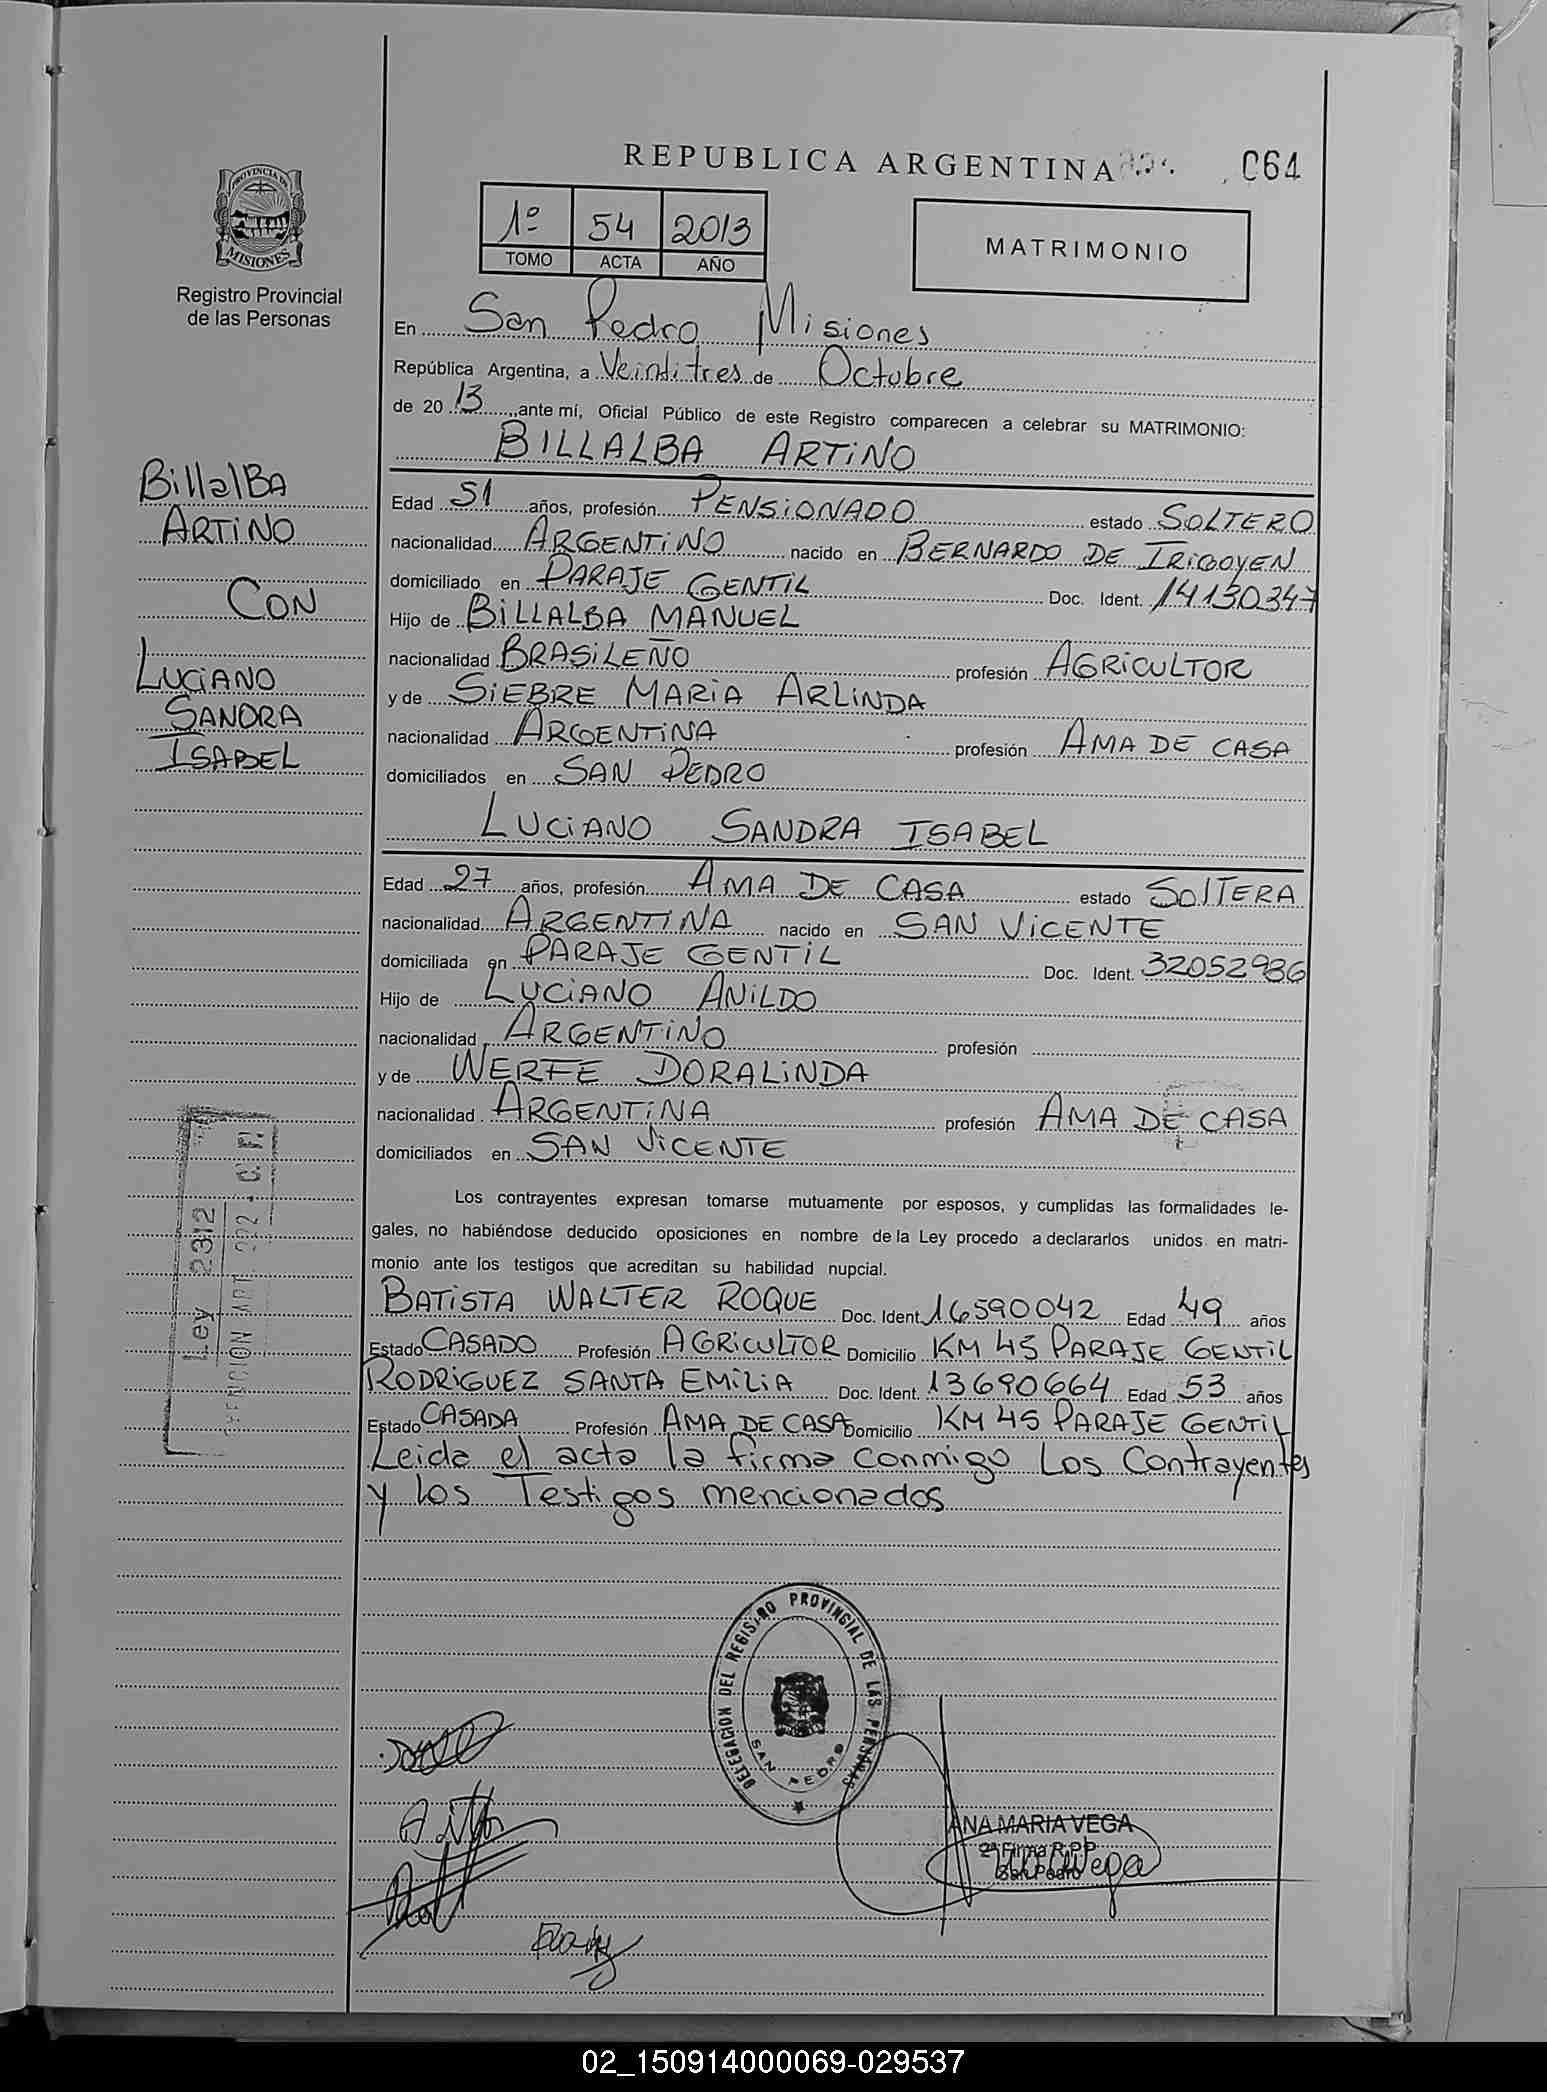 REPUBLICA ARGENTINA
064
PROVINCIA DE
MISIONES
Registro Provincial
de las Personas
1º 54 2013
TOMO ACTA AÑO
MATRIMONIO
En San Pedro Misiones
República Argentina, a Veintitres de Octubre
de 2013, ante mí, Oficial Público de este Registro comparecen a celebrar su MATRIMONIO:
BILLALBA ARTINO
BillalBA
ARTINO
CON
LUCIANO
SANDRA
ISABEL
Edad 51 años, profesión PENSIONADO estado SOLTERO
nacionalidad ARGENTINO nacido en BERNARDO DE IRIGOYEN
domiciliado en PARAJE GENTIL Doc. Ident. 14130347
Hijo de BILLALBA MANUEL
nacionalidad BRASILEÑO profesión AGRICULTOR
y de SIEBRE MARIA ARLINDA
nacionalidad ARGENTINA profesión AMA DE CASA
domiciliados en SAN PEDRO
LUCIANO SANDRA ISABEL
Edad 27 años, profesión AMA DE CASA estado SOLTERA
nacionalidad ARGENTINA nacido en SAN VICENTE
domiciliada en PARAJE GENTIL Doc. Ident. 32052986
Hijo de LUCIANO ANILDO
nacionalidad ARGENTINO profesión
y de WERFE DORALINDA
nacionalidad ARGENTINA profesión AMA DE CASA
domiciliados en SAN VICENTE
Los contrayentes expresan tomarse mutuamente por esposos, y cumplidas las formalidades le-
gales, no habiéndose deducido oposiciones en nombre de la Ley procedo a declararlos unidos en matri-
monio ante los testigos que acreditan su habilidad nupcial.
BATISTA WALTER ROQUE Doc. Ident. 16590042 Edad 49 años
Estado CASADO Profesión AGRICULTOR Domicilio KM 45 PARAJE GENTIL
RODRIGUEZ SANTA EMILIA Doc. Ident. 13690664 Edad 53 años
Estado CASADA Profesión AMA DE CASA Domicilio KM 45 PARAJE GENTIL
Leida el acta la firma conmigo Los Contrayentes
y los Testigos mencionados
Ley 2312
ART. 292 . C. F.
DELEGACION DEL REGISTRO PROVINCIAL DE LAS PERSONAS
SAN PEDRO
ANA MARIA VEGA
2ª Firma R.P.P
San Pedro
02_150914000069-029537